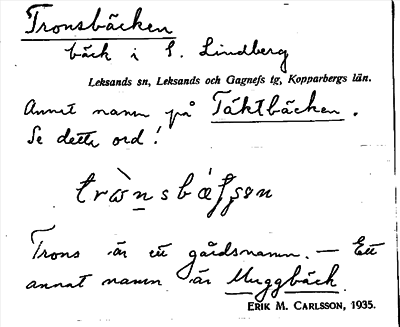 Tronsbäcken
bäck i S. Lindberg
Leksands sn, Leksands och Gagnefs tg, Kopparbergs län.
Annat namn på Täktbäcken.
Se detta ord!
Trons är ett gårdsnamn. — Ett
annat namn är Muggbäck.
ERIK M. CARLSSON, 1935.